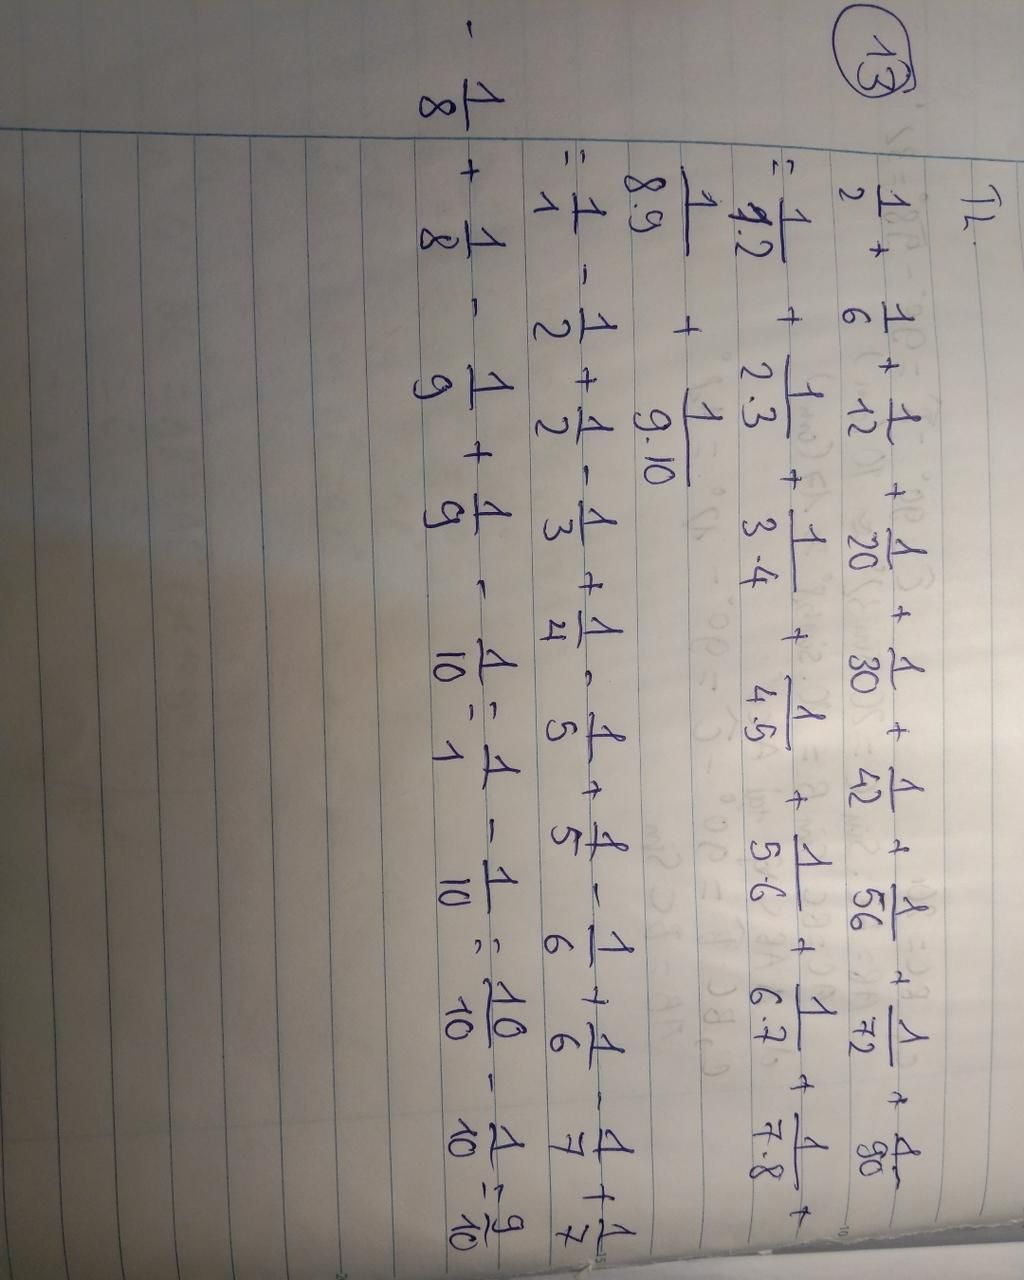 13
1/2 + 1/6 + 1/12 + 1/20 + 1/30 + 1/42 + 1/56 + 1/72 + 1/90
= 1/1.2 + 1/2.3 + 1/3.4 + 1/4.5 + 1/5.6 + 1/6.7 + 1/7.8 +
1/8.9 + 1/9.10
= 1/1 - 1/2 + 1/2 - 1/3 + 1/4 - 1/5 + 1/5 - 1/6 + 1/6 - 1/7 + 1/7
- 1/8 + 1/8 - 1/9 + 1/9 - 1/10 = 1/1 - 1/10 = 10/10 - 1/10 = 9/10